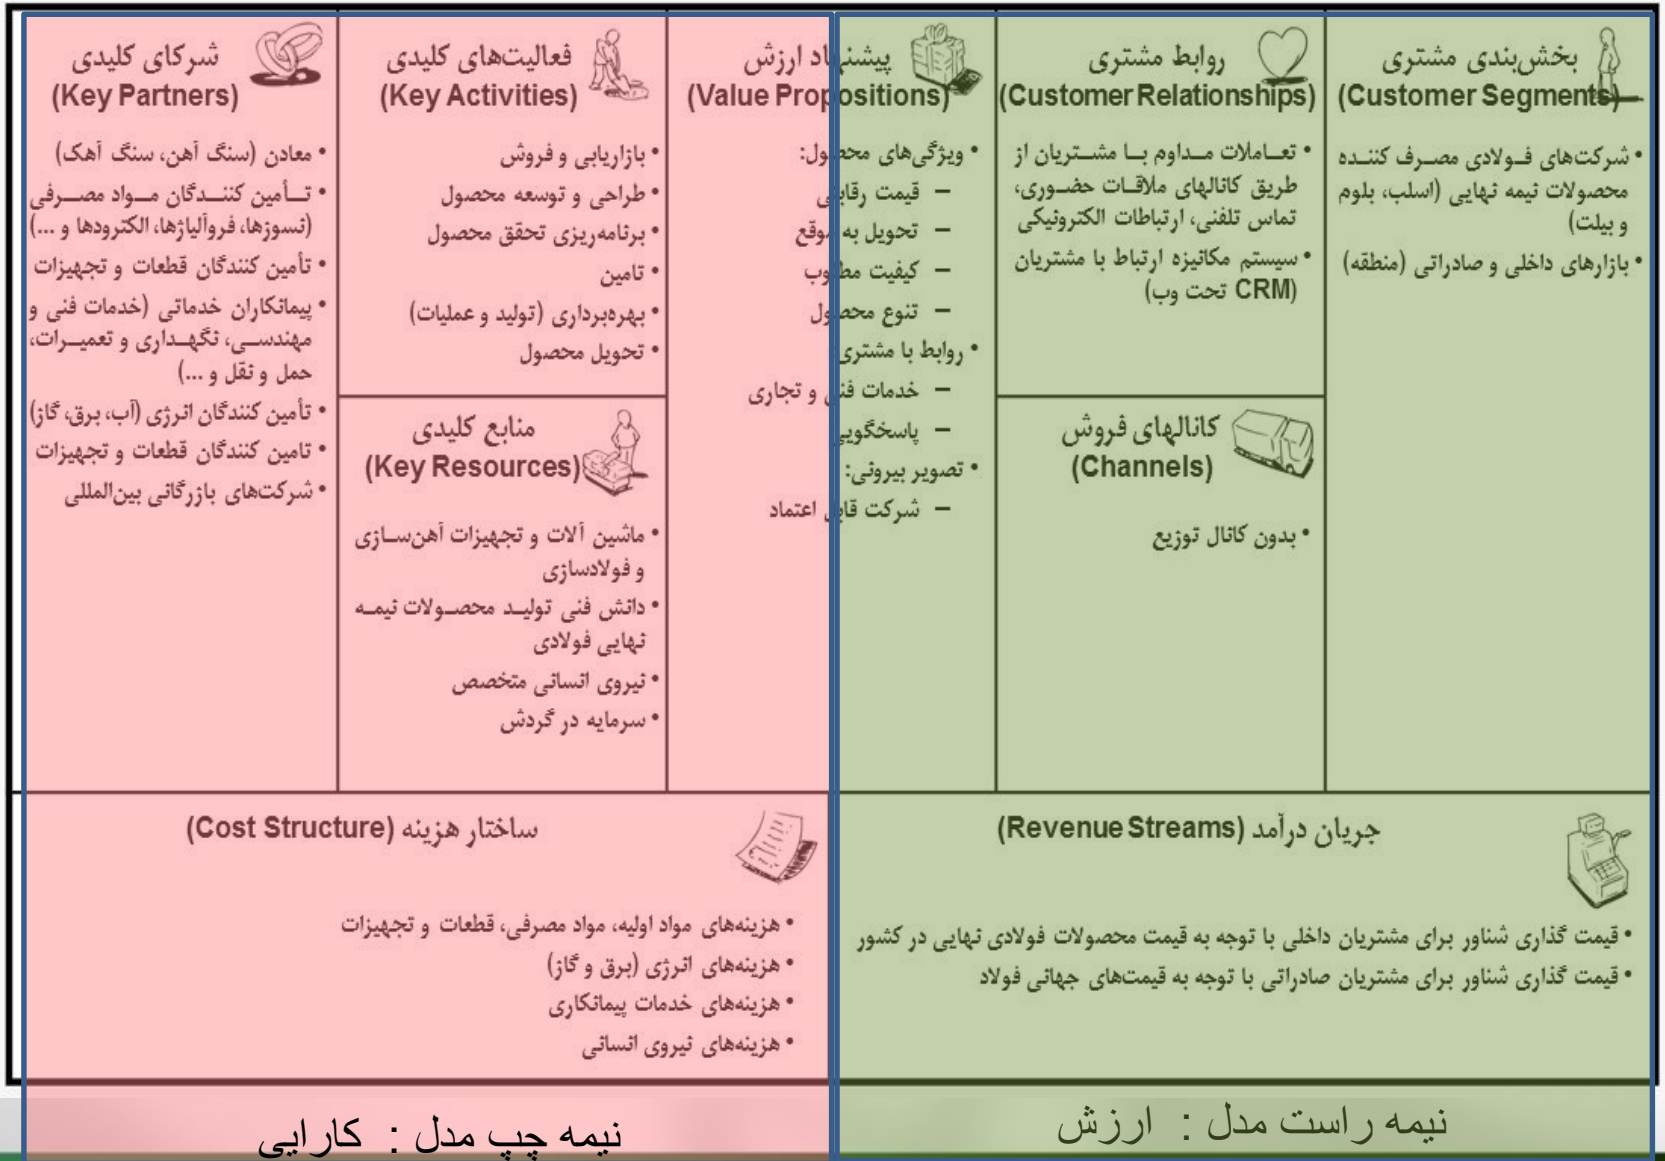 بخش‌بندی مشتری
(Customer Segments)
• شرکت‌های فـولادی مصـرف کننـده
محصولات نیمه نهایی (اسلب، بلوم
و بیلت)
• بازارهای داخلی و صادراتی (منطقه)
روابط مشتری
(Customer Relationships)
• تعـاملات مـداوم بـا مشـتریان از
طریق کانالهای ملاقـات حضـوری،
تماس تلفنی، ارتباطات الکترونیکی
• سیستم مکانیزه ارتباط با مشتریان
(CRM تحت وب)
کانالهای فروش
(Channels)
• بدون کانال توزیع
پیشنهاد ارزش
(Value Propositions)
• ویژگی‌های محصول:
– قیمت رقابتی
– تحویل به موقع
– کیفیت مطلوب
– تنوع محصول
• روابط با مشتری:
– خدمات فنی و تجاری
– پاسخگویی
• تصویر بیرونی:
– شرکت قابل اعتماد
فعالیت‌های کلیدی
(Key Activities)
• بازاریابی و فروش
• طراحی و توسعه محصول
• برنامه‌ریزی تحقق محصول
• تامین
• بهره‌برداری (تولید و عملیات)
• تحویل محصول
منابع کلیدی
(Key Resources)
• ماشین آلات و تجهیزات آهن‌سـازی
و فولادسازی
• دانش فنی تولیـد محصـولات نیمـه
نهایی فولادی
• نیروی انسانی متخصص
• سرمایه در گردش
شرکای کلیدی
(Key Partners)
• معادن (سنگ آهن، سنگ آهک)
• تــأمین کننــدگان مــواد مصــرفی
(نسوزها، فروآلیاژها، الکترودها و ...)
• تأمین کنندگان قطعات و تجهیزات
• پیمانکاران خدماتی (خدمات فنی و
مهندســی، نگهــداری و تعمیــرات،
حمل و نقل و ...)
• تأمین کنندگان انرژی (آب، برق، گاز)
• تامین کنندگان قطعات و تجهیزات
• شرکت‌های بازرگانی بین‌المللی
جریان درآمد (Revenue Streams)
• قیمت گذاری شناور برای مشتریان داخلی با توجه به قیمت محصولات فولادی نهایی در کشور
• قیمت گذاری شناور برای مشتریان صادراتی با توجه به قیمت‌های جهانی فولاد
ساختار هزینه (Cost Structure)
• هزینه‌های مواد اولیه، مواد مصرفی، قطعات و تجهیزات
• هزینه‌های انرژی (برق و گاز)
• هزینه‌های خدمات پیمانکاری
• هزینه‌های نیروی انسانی
نیمه راست مدل : ارزش
نیمه چپ مدل : کارایی